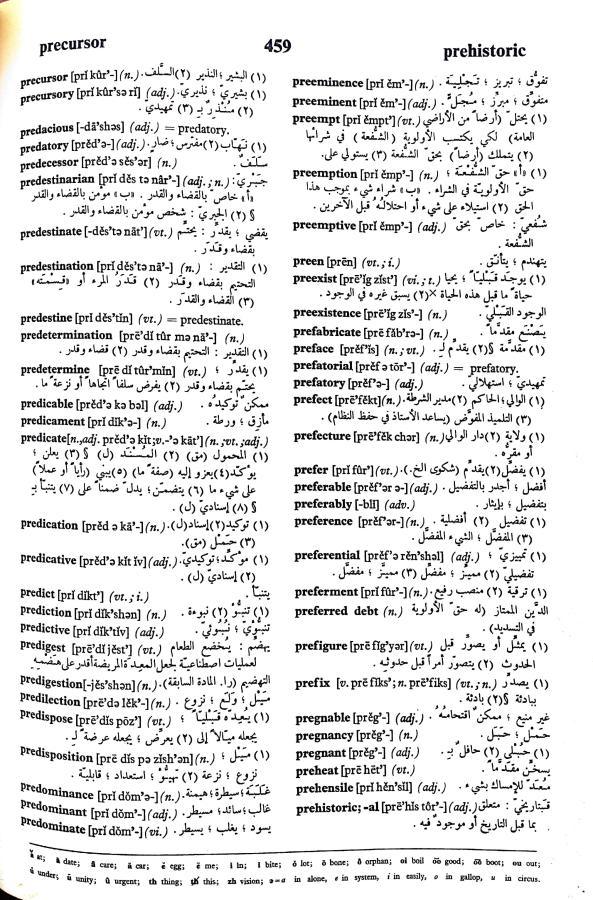 precursor
459
prehistoric
precursor [prĭ kûr′-] (n.) (١) البشير ؛ النذير (٢) السَّلَف.
precursory [prĭ kûr′sə rĭ] (adj.) (١) بشيريّ ؛ نذيريّ
(٢) مُنْذِرٌ بـ (٣) تمهيديّ .
predacious [-dā′shəs] (adj.) = predatory.
predatory [prĕd′ə-] (adj.) (١) نهّاب (٢) مفترس ؛ ضارٍ .
predecessor [prĕd′ə sĕs′ər] (n.) سَلَفٌ .
predestinarian [prĭ dĕs tə nâr′-] (adj.; n.) جَبْريّ :
«أ» خاصّ بالقضاء والقدر . «ب» مؤمن بالقضاء والقدر
§ (٢) الجبريّ : شخص مؤمن بالقضاء والقدر .
predestinate [-dĕs′tə nāt′] (vt.) يقضي ؛ يقدّر ؛ يحتّم
بقضاء وقدر .
predestination [prĭ dĕs tə nā′-] (n.) (١) التقدير :
التحتيم بقضاء وقدر (٢) قدَر المرء أو «قِسْمَته»
(٣) القضاء والقدر .
predestine [prĭ dĕs′tĭn] (vt.) = predestinate.
predetermination [prē′dĭ tûr mə nā′-] (n.)
(١) التقدير : التحتيم بقضاء وقدر (٢) قضاء وقدر .
predetermine [prē dĭ tûr′mĭn] (vt.) (١) يقدّر ؛
يحتّم بقضاء وقدر (٢) يفرض سلفاً اتجاهاً أو نزعة ما .
predicable [prĕd′ə kə bəl] (adj.) ممكنٌ توكيدُه .
predicament [prĭ dĭk′ə-] (n.) مأزق ؛ ورطة .
predicate [n., adj. prĕd′ə kĭt; v. -′ə kāt′] (n.; vt.; adj.)
(١) المحمول (مق) (٢) المُسْنَد (ل) § (٣) يعلن ؛
يؤكّد (٤) يعزو إليه (صفةً ما) (٥) يبني (رأياً أو عملاً)
على شيء ما (٦) يتضمّن ؛ يدلّ ضمناً على (٧) يتنبّأ بـ
§ (٨) إسناديّ (ل) .
predication [prĕd ə kā′-] (n.) (١) توكيد (٢) إسناد (ل) .
(٣) حَمْل (مق) .
predicative [prĕd′ə kĭt ĭv] (adj.) (١) مؤكِّد ؛ توكيديّ .
(٢) إسناديّ (ل) .
predict [prĭ dĭkt′] (vt.; i.) يتنبّأ .
prediction [prĭ dĭk′shən] (n.) (١) تنبّؤ (٢) نبوءة .
predictive [prĭ dĭk′tĭv] (adj.) تنبّؤيّ ؛ نبوئيّ .
predigest [prē′dĭ jĕst′] (vt.) يهضم : يُخضع الطعام
لعمليات اصطناعية لجعل المعدة المريضة أقدر على هضمه
predigestion [-jĕs′shən] (n.) التهضيم (را. المادة السابقة) .
predilection [prē′də lĕk′-] (n.) مَيْل ؛ وَلَع ؛ نزوع .
predispose [prē′dĭs pōz′] (vt.) (١) يُعِدّه قَبْليّاً ؛
يجعله ميّالاً إلى (٢) يعرّض ؛ يجعله عرضةً لـ .
predisposition [prē dĭs pə zĭsh′ən] (n.) (١) مَيْل ؛
نزوع ؛ نزعة (٢) تهيّؤ ؛ استعداد ؛ قابلية .
predominance [prĭ dŏm′ə-] (n.) غلَبة ؛ سيطرة ؛ هيمنة .
predominant [prĭ dŏm′-] (adj.) غالب ؛ سائد ؛ مسيطر .
predominate [prĭ dŏm′-] (vi.) يسود ؛ يغلب ؛ يسيطر .
preeminence [prĭ ĕm′-] (n.) تفوّق ؛ تبريز ؛ تَجْلِيَة .
preeminent [prĭ ĕm′-] (adj.) متفوّق ؛ مبرِّز ؛ مُجَلٍّ .
preempt [prĭ ĕmpt′] (vt.) (١) يحتلّ (أرضاً من الأراضي
العامة) لكي يكتسب الأولوية (الشُّفعة) في شرائها
(٢) يتملك (أرضاً) بحقّ الشُّفعة (٣) يستولي على .
preemption [prĭ ĕmp′-] (n.) (١) «أ» حقّ الشُّفْعة ؛
حقّ الأولويّة في الشراء . «ب» شراء شيء بموجب هذا
الحق (٢) استيلاء على شيء أو احتلالُه قبل الآخرين .
preemptive [prĭ ĕmp′-] (adj.) شُفعيّ : خاصّ بحقّ
الشفعة .
preen [prēn] (vt.; i.) يتهندم ؛ يتأنّق .
preexist [prē′ĭg zĭst′] (vi.; t.) (١) يوجد قَبْليّاً ؛ يحيا
حياةً ما قبل هذه الحياة ×(٢) يسبق غيره في الوجود .
preexistence [prē′ĭg zĭs′-] (n.) الوجود القَبْليّ .
prefabricate [prē făb′rə-] (n.) يصنّع مقدّماً .
preface [prĕf′ĭs] (n.; vt.) (١) مقدّمة §(٢) يقدّم لـ .
prefatorial [prĕf ə tōr′-] (adj.) = prefatory.
prefatory [prĕf′ə-] (adj.) تمهيديّ ؛ استهلاليّ .
prefect [prē′fĕkt] (n.) (١) الوالي ؛ الحاكم (٢) مدير الشرطة .
(٣) التلميذ المفوَّض (يساعد الأستاذ في حفظ النظام) .
prefecture [prē′fĕk chər] (n.) (١) ولاية (٢) دار الوالي
أو مقرّه .
prefer [prĭ fûr′] (vt.) (١) يفضّل (٢) يقدّم (شكوى الخ.) .
preferable [prĕf′ər ə-] (adj.) أفضل ؛ أجدر بالتفضيل .
preferably [-blĭ] (adv.) بتفضيل ؛ بإيثار .
preference [prĕf′ər-] (n.) (١) تفضيل (٢) أفضلية .
(٣) المفضَّل ؛ الشيء المفضَّل .
preferential [prĕf′ə rĕn′shəl] (adj.) (١) تمييزيّ ؛
تفضيليّ (٢) مميِّز ؛ مفضِّل (٣) مميَّز ؛ مفضَّل .
preferment [prĭ fûr′-] (n.) (١) ترقية (٢) منصب رفيع .
preferred debt (n.) الدَّين الممتاز (له حقّ الأولوية
في التسديد) .
prefigure [prē fĭg′yər] (vt.) (١) يمثّل أو يصوّر قبل
الحدوث (٢) يتصوّر أمراً قبل حدوثه .
prefix [v. prē fĭks′; n. prē′fĭks] (vt.; n.) (١) يصدّر
ببادئة §(٢) بادئة .
pregnable [prĕg′-] (adj.) غير منيع ؛ ممكنٌ اقتحامُهُ .
pregnancy [prĕg′-] (n.) حَمْل ؛ حَبَل .
pregnant [prĕg′-] (adj.) (١) حُبْلى (٢) حافل بـ .
preheat [prē hēt′] (vt.) يسخّن مقدّماً .
prehensile [prĭ hĕn′sĭl] (adj.) مُعَدّ للإمساك بشيء .
prehistoric; -al [prē′hĭs tôr′-] (adj.) قبتاريخيّ : متعلق
بما قبل التاريخ أو موجود فيه .
ă at; ā date; â care; ä car; ĕ egg; ē me; ĭ in; ī bite; ŏ lot; ō bone; ô orphan; oi boil o͝o good; o͞o boot; ou out;
ŭ under; ū unity; û urgent; th thing; t͟h this; zh vision; ə=a in alone, e in system, i in easily, o in gallop, u in circus.